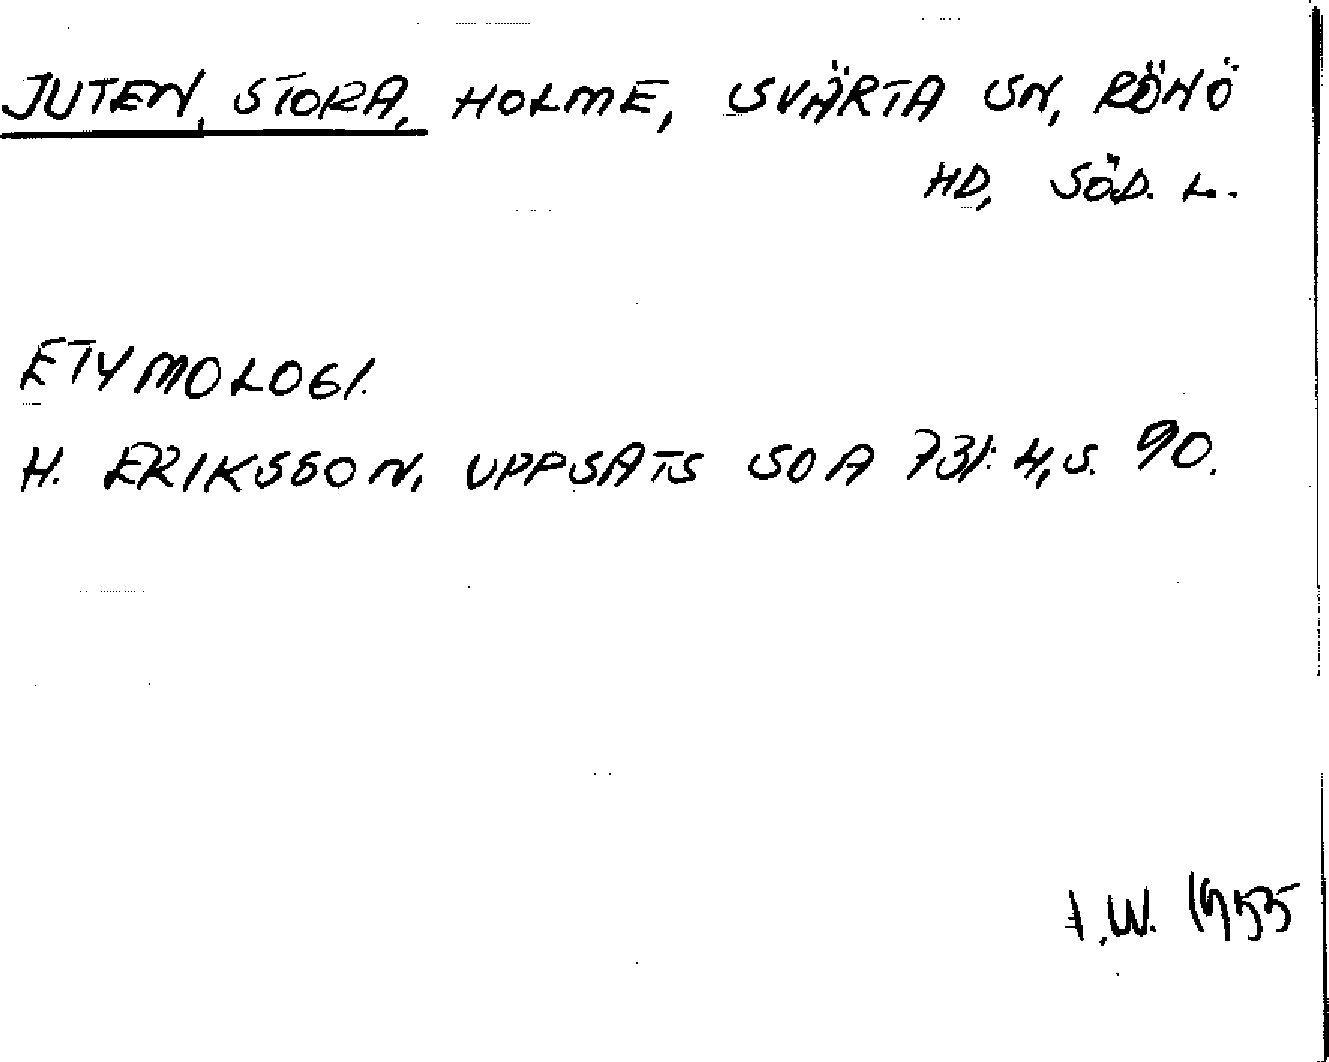 JUTEN, STORA, HOLME, SVÄRTA SN, RÖNÖ
HD, SÖD. L.
ETYMOLOGI.
H. ERIKSSON, UPPSATS SOA 731:4, S. 90.
I.W. 1955